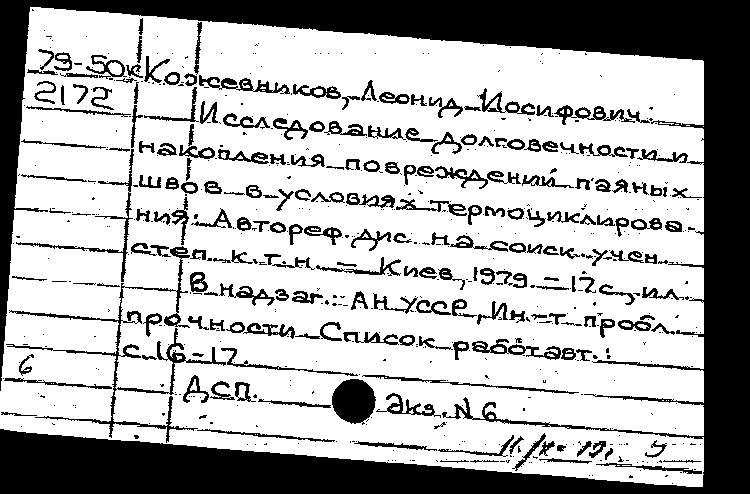 79-50к Кожевников, Леонид Иосифович.
2172 Исследование долговечности и
накопления повреждений паяных
швов в условиях термоциклирова-
ния: Автореф. дис. на соиск. учен.
степ. к.т.н. - Киев, 1979. - 17 с., ил.
В надзаг.: АН УССР, Ин.-т пробл.
прочности. Список работ авт.:
с. 16-17.
6
ДСП. Экз. N 6